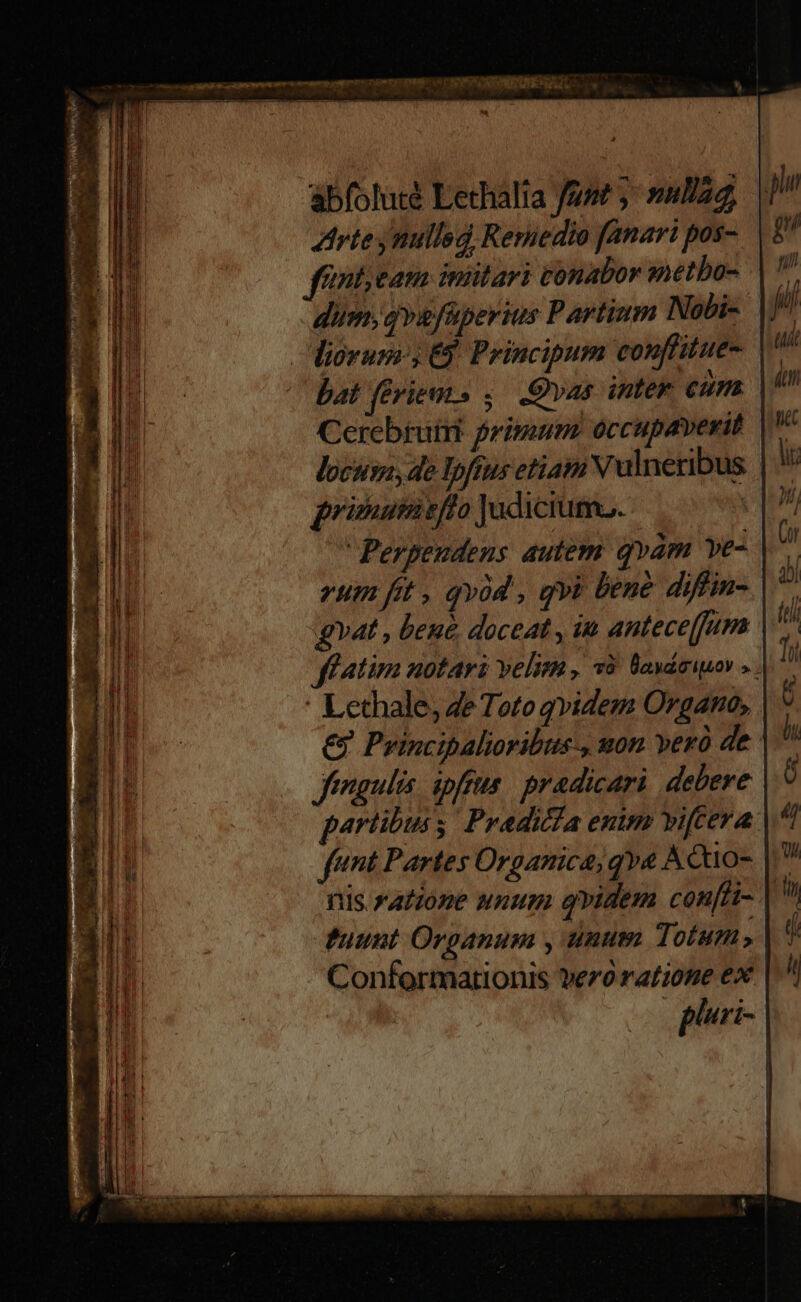 abſolutè Lethalia ſunt, nullâq́,
Arte, nulloq́, Remedio ſanari pos-
ſunt, eam imitari conabor metho-
dum, qvæ ſuperius Partium Nobi-
liorum, & Principum conſtitue-
bat ſeriem, Qvas inter cùm
Cerebrum primum occupaverit
locum, de Ipſius etiam Vulneribus
primum eſto Judicium.
Perpendens autem qvàm ve-
rum ſit, qvòd, qvi benè diſtin-
gvat, benè doceat, in anteceſſum
ſtatim notari velim, τὸ θανάσιμον,
Lethale, de Toto qvidem Organo,
& Principalioribus, non verò de
ſingulis ipſius prædicari debere
partibus; Prædicta enim viſcera
ſunt Partes Organicæ, qvæ Actio-
nis ratione unum qvidem conſti-
tuunt Organum, unum Totum,
Conformationis verò ratione ex
pluri-